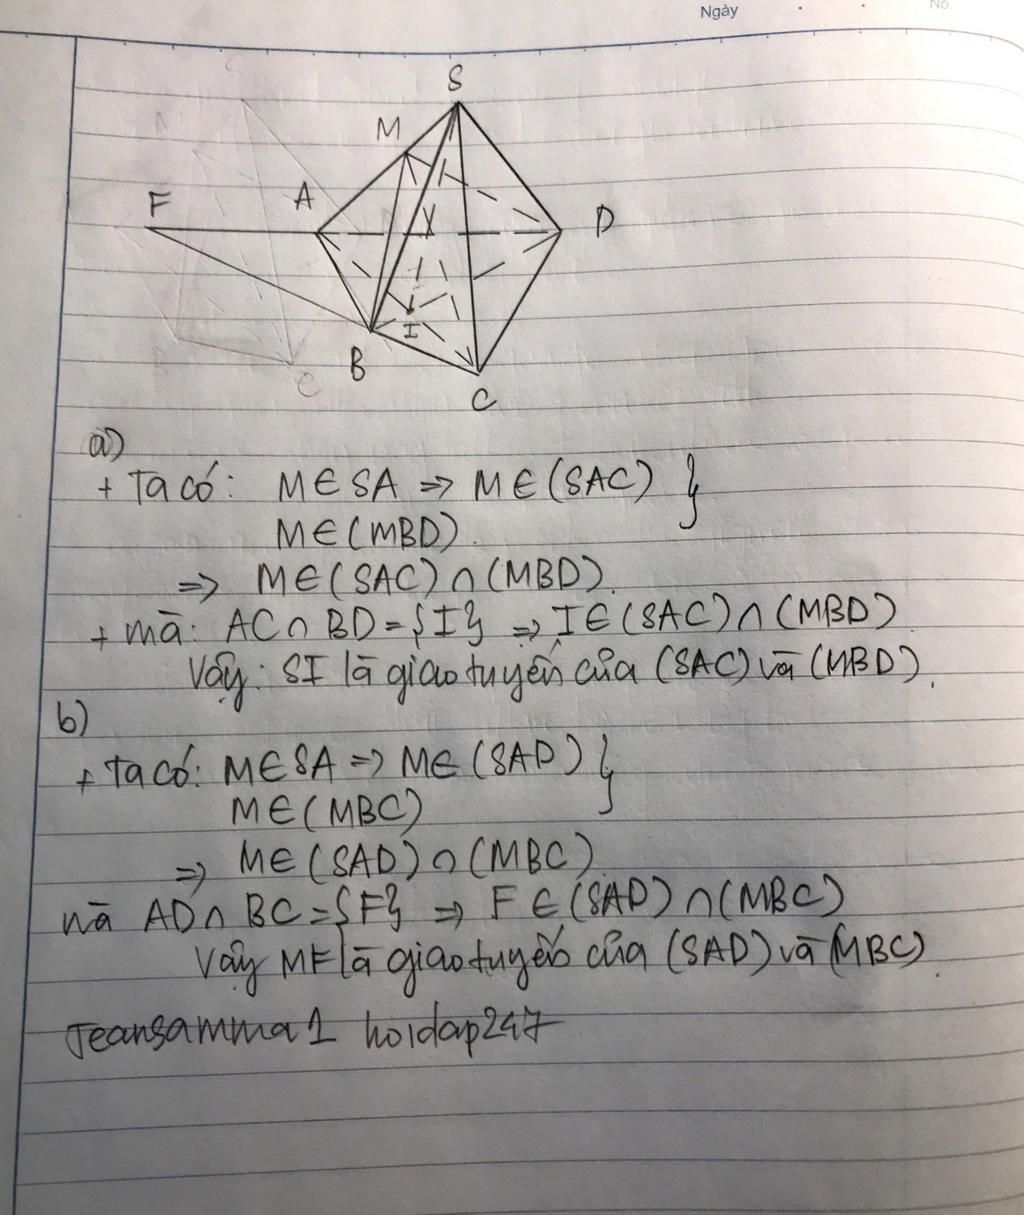 Ngày
No.
S
M
F
A
D
I
B
C
a)
+ Ta có: M∈SA => M∈(SAC) }
M∈(MBD).
=> M∈(SAC)∩(MBD).
+ mà: AC∩BD={I} => I∈(SAC)∩(MBD).
Vậy: SI là giao tuyến của (SAC) và (MBD).
b)
+ Ta có: M∈SA => M∈(SAD) }
M∈(MBC)
=> M∈(SAD)∩(MBC)
mà AD∩BC={F} => F∈(SAD)∩(MBC)
Vậy MF là giao tuyến của (SAD) và (MBC).
Jeansamma1 hoidap247